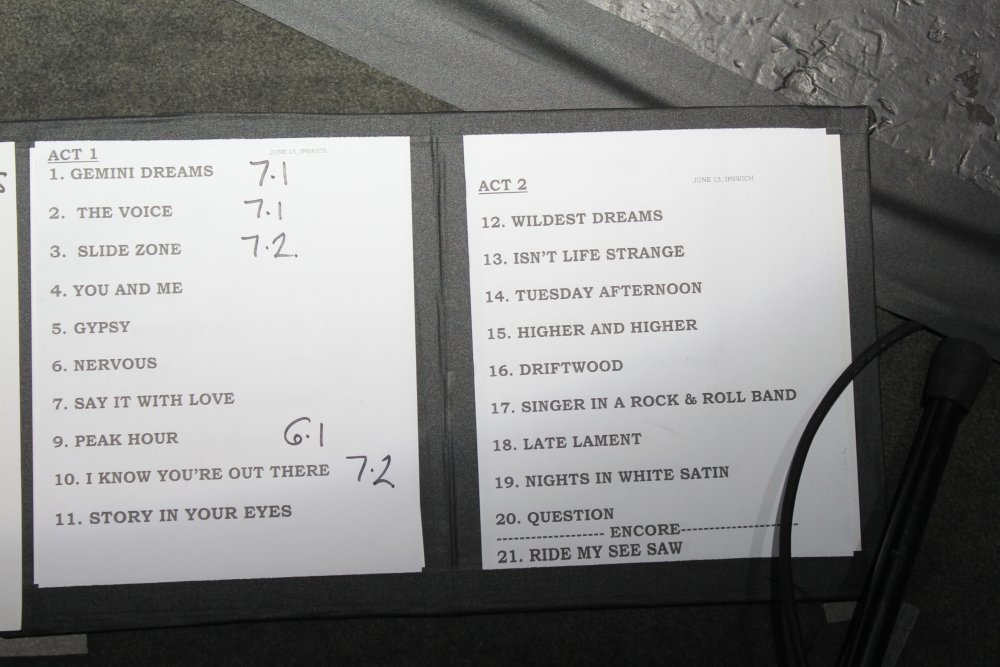 ACT 1
JUNE 13, IPSWICH
1. GEMINI DREAMS 7.1
2. THE VOICE 7.1
3. SLIDE ZONE 7.2.
4. YOU AND ME
5. GYPSY
6. NERVOUS
7. SAY IT WITH LOVE
9. PEAK HOUR 6.1
10. I KNOW YOU'RE OUT THERE 7.2
11. STORY IN YOUR EYES
ACT 2
JUNE 13, IPSWICH
12. WILDEST DREAMS
13. ISN'T LIFE STRANGE
14. TUESDAY AFTERNOON
15. HIGHER AND HIGHER
16. DRIFTWOOD
17. SINGER IN A ROCK & ROLL BAND
18. LATE LAMENT
19. NIGHTS IN WHITE SATIN
20. QUESTION
-------------------- ENCORE--------------------
21. RIDE MY SEE SAW